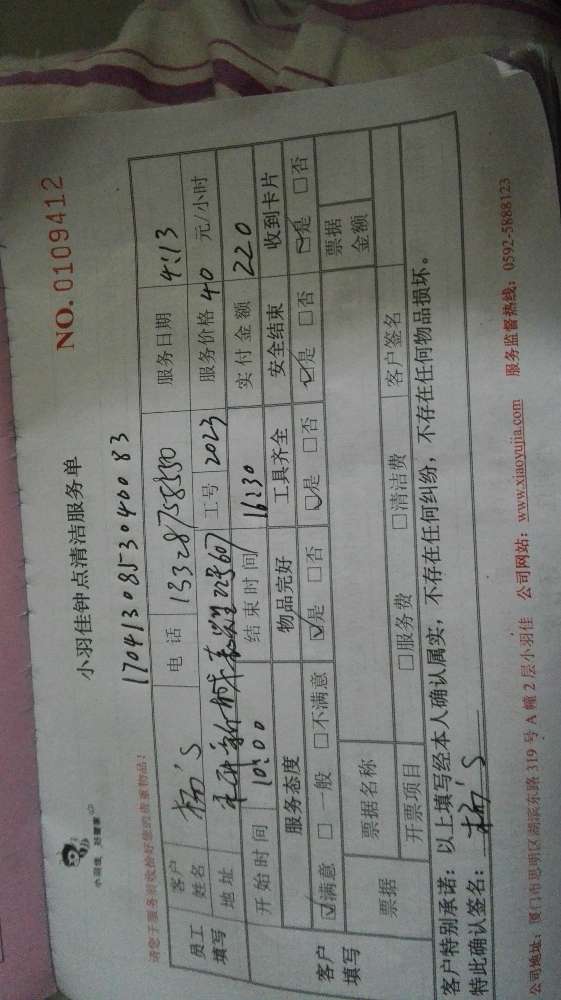 小羽佳 好管家
小羽佳钟点清洁服务单
NO. 0109412
1704130853040083
请您于服务前收拾好您的贵重物品!
员工填写
客户姓名 杨's 电话 13328758550 服务日期 4:13
地址 22号607 工号 2023 服务价格 40 元/小时
开始时间 10:00 结束时间 16:30 实付金额 220
客户填写
服务态度 物品完好 工具齐全 安全结束 收到卡片
☑满意 □一般 □不满意 ☑是 □否 ☑是 □否 ☑是 □否 ☑是 □否
票据 票据名称 票据金额
开票项目 □服务费 □清洁费 客户签名
客户特别承诺:以上填写经本人确认属实,不存在任何纠纷,不存在任何物品损坏。
特此确认签名: 杨's
公司地址:厦门市思明区湖滨东路319号A幢2层小羽佳 公司网站:www.xiaoyujia.com 服务监督热线:0592-5888123